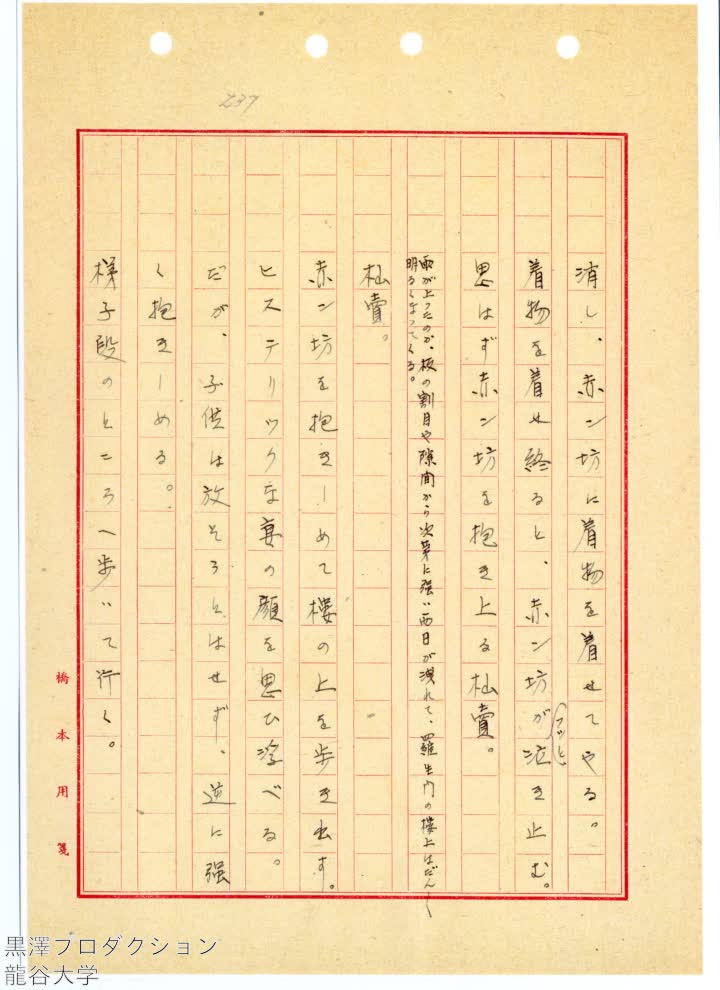 237
消し、赤ン坊に着物を着せてやる。
着物を着せ終ると、赤ン坊がフッと泣き止む。
思はず赤ン坊を抱き上る杣賣。
雨が上ったのか、板の割目や隙間から次第に強い西日が洩れて、羅生門の樓上はだん〱
明るくなってくる。
杣賣。
赤ン坊を抱きしめて樓の上を歩き出す。
ヒステリックな妻の顔を思ひ浮べる。
だが、子供は放そうとはせず、逆に强
く抱きしめる。
梯子段のところへ歩いて行く。
橋本用箋
黒澤プロダクション
龍谷大学